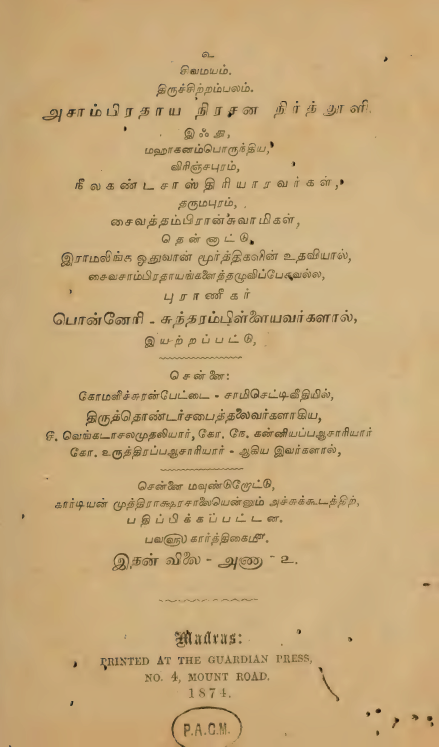 உ
சிவமயம்.
திருச்சிற்றம்பலம்.
அசாம்பிரதாய நிரசன நிர்த்தூளி.
இஃது,
மஹாகனம்பொருந்திய,
விரிஞ்சபுரம்,
நீலகண்டசாஸ்திரியாரவர்கள்,
தருமபுரம்,
சைவத்தம்பிரான்சுவாமிகள்,
தென்னாட்டு,
இராமலிங்க ஓதுவான் மூர்த்திகளின் உதவியால்,
சைவசாம்பிரதாயங்களைத்தழுவிப்பேசவல்ல,
புராணீகர்
பொன்னேரி - சுந்தரம்பிள்ளையவர்களால்,
இயற்றப்பட்டு,
சென்னை:
கோமளீச்சுரன்பேட்டை - சாமிசெட்டிவீதியில்,
திருத்தொண்டர்சபைத்தலைவர்களாகிய,
சி. வெங்கடாசலமுதலியார், கோ. கே. கன்னியப்பஆசாரியார்
கோ. உருத்திரப்பஆசாரியார் - ஆகிய இவர்களால்,
சென்னை மவுண்டுரோட்டு,
கார்டியன் முத்திராக்ஷரசாலையென்னும் அச்சுக்கூடத்திற்,
பதிப்பிக்கப்பட்டன.
பவ௵ கார்த்திகை௴.
இதன் விலை - அணா - உ.
Madras:
PRINTED AT THE GUARDIAN PRESS,
NO. 4, MOUNT ROAD.
1874.
P.A.C.M.